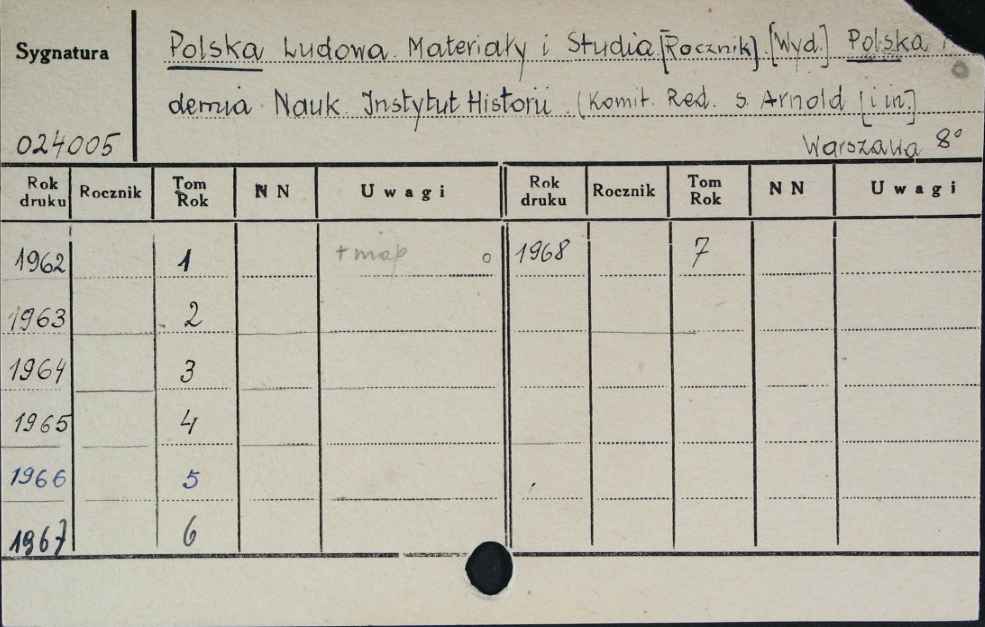 Sygnatura
Polska Ludowa. Materiały i Studia [Rocznik]. [Wyd.] Polska
demia Nauk. Instytut Historii. (Komit. Red. S. Arnold [i in.]
024005
Warszawa 8°
Rok druku Rocznik Tom Rok NN Uwagi Rok druku Rocznik Tom Rok NN Uwagi
1962 1 + map 1968 7
1963 2
1964 3
1965 4
1966 5
1967 6